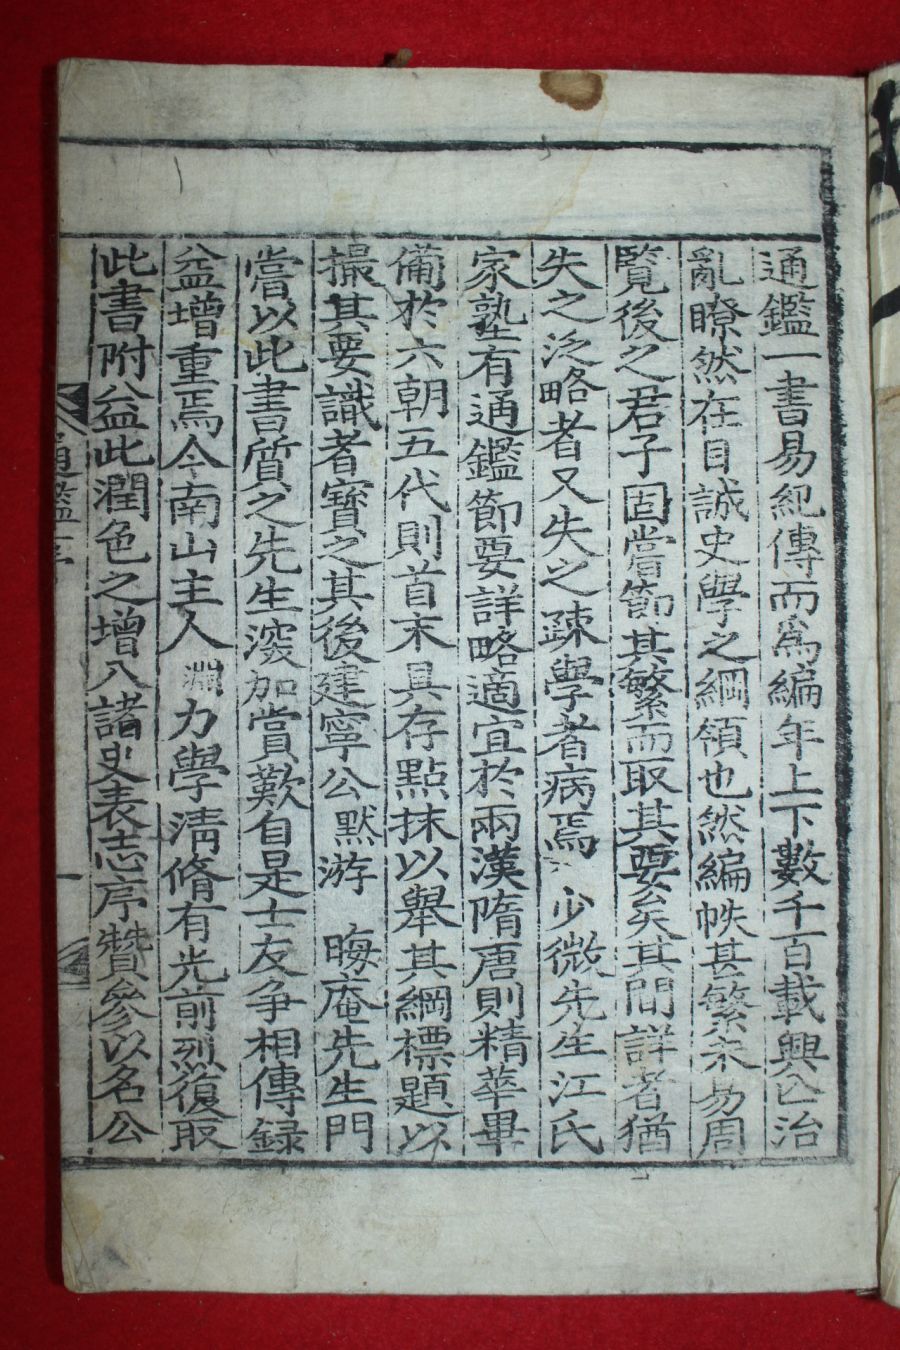 通鑑一書易紀傳而爲編年上下數千百載興亾治
亂瞭然在目誠史學之綱領也然編帙甚繁未易周
覽後之君子固嘗節其繁而取其要矣其間詳者猶
失之泛略者又失之疎學者病焉 少微先生江氏
家塾有通鑑節要詳略適宜於兩漢隋唐則精華畢
備於六朝五代則首末具存點抹以舉其綱標題以
撮其要識者寶之其後建寧公默游 晦庵先生門
嘗以此書質之先生深加賞歎自是士友争相傳録
益增重焉今南山主人 淵力學淸脩有光前烈復取
此書附益此潤色之增入諸史表志序贊參以名公
通鑑序
一